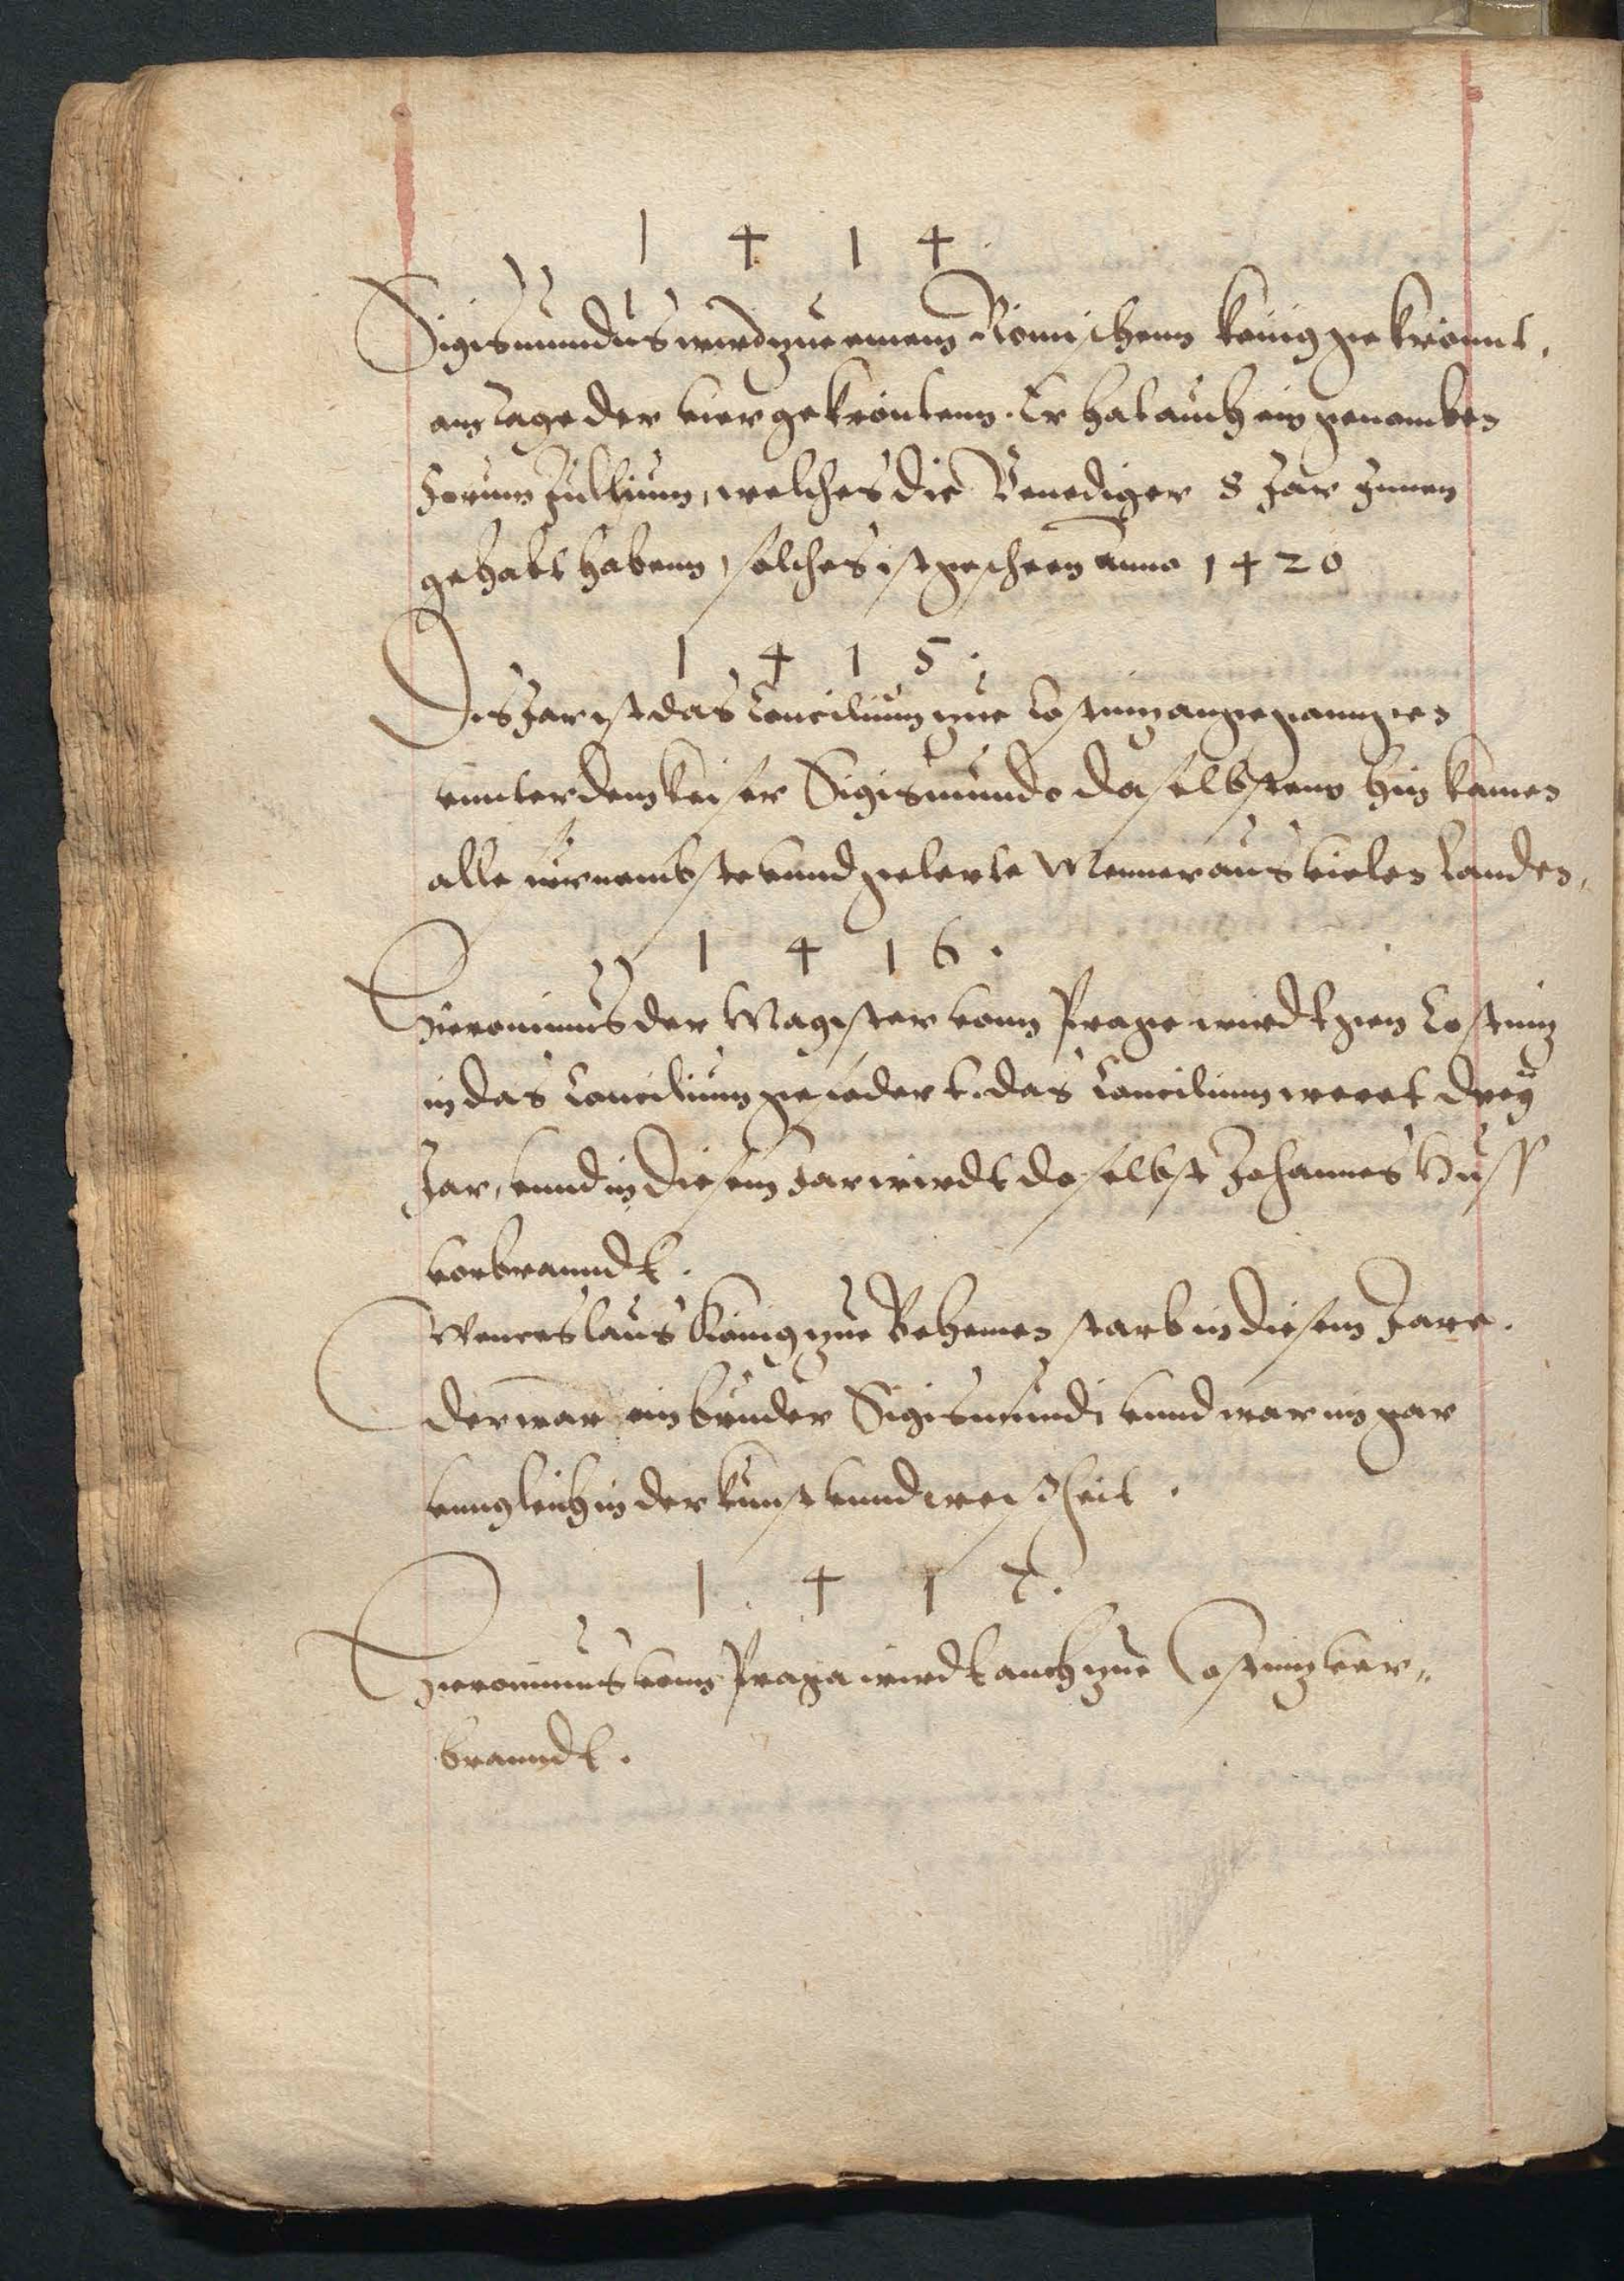 1 4 1 4.
Sigismundus wird zue einem Römischenn könig gekrönnt,
am tage der vier gekröntenn. Er hat auch ein genomben
Forum Jullium, welches die Venediger 8 Jar Innen
gehabt habenn, solches ist gescheen anno 1420
1 4 1 5.
Dis Jar ist das Concilium zue Costnitz angegangen
vnnter dem keiser Sigismundo daselbstens hin kamen
alle furnembste vnnd gelerte Menner aus vielen Landen,
1 4 1 6.
Hieronimus der Magister vonn Prage wirdt gen Costnitz
in das Concilium gefodert. das Concilium weret dreÿ
Jar, vnnd in diesem Jar wirdt daselbst Johannes Huss
vorbranndt.
Wenceslaus König zue Behemen starb in diesem Jare.
der war ein bruder Sigismundi vnnd war im gar
vnngleich in der kunst vnnd weisheit.
1 4 1 7.
Hieronimus vonn Praga wirdt auch zue Costnitz ver„
branndt.